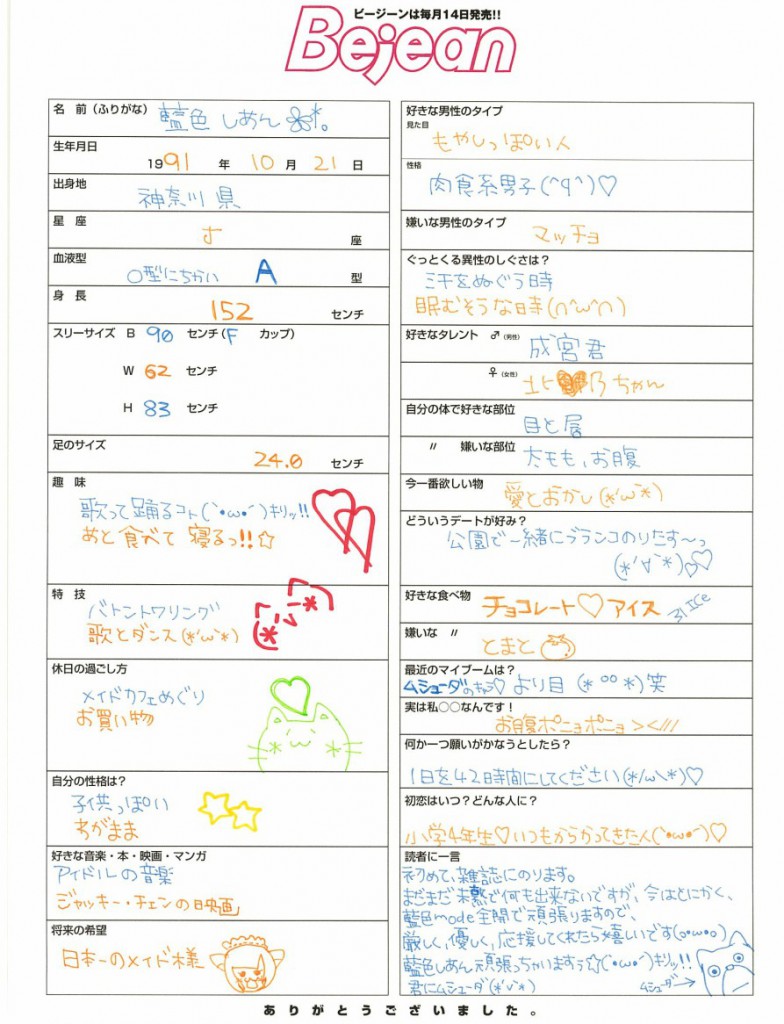 ビージーンは毎月14日発売!!
Bejean
名 前（ふりがな） 藍色 しあん
生年月日
1991 年 10 月 21 日
出身地
神奈川県
星 座
す 座
血液型
O型にちかい A 型
身 長
152 センチ
スリーサイズ B 90 センチ(F カップ)
W 62 センチ
H 83 センチ
足のサイズ
24.0 センチ
趣 味
歌って踊るコト(`・ω・´)キリッ!!
あと食べて 寝るっ!!☆
特 技
バトントワリング
歌とダンス(*´ω`*)
休日の過ごし方
メイドカフェめぐり
お買い物
自分の性格は？
子供っぽい
わがまま
好きな音楽・本・映画・マンガ
アイドルの音楽
ジャッキー・チェンの映画
将来の希望
日本一のメイド様
好きな男性のタイプ
見た目
もやしっぽい人
性格
肉食系男子(^q^)♡
嫌いな男性のタイプ
マッチョ
ぐっとくる異性のしぐさは？
汗をぬぐう時
眠むそうな時(∩^ω^∩)
好きなタレント ♂（男性） 成宮君
♀（女性） 北乃ちゃん
自分の体で好きな部位
目と唇
〃 嫌いな部位
太モモ、お腹
今一番欲しい物
愛とおかし(*´ω`*)
どういうデートが好み？
公園で一緒にブランコのりたす〜っ
(*´∀`*)♡♡
好きな食べ物
チョコレート♡アイス 31ICE
嫌いな 〃
とまと
最近のマイブームは？
ムシューダのキャラ♡ より目 (*°°*)笑
実は私○○なんです！
お腹ポニョポニョ><///
何か一つ願いがかなうとしたら？
1日を42日時間にしてください(*/ω\*)♡
初恋はいつ？どんな人に？
小学4年生♡いつもからかってきた人(`・ω・´)♡
読者に一言
初めて、雑誌にのります。
まだまだ未熟で何も出来ないですが、今はとにかく、
藍色mode全開で頑張りますので、
厳しく、優しく、応援してくれたら嬉しいです(o・ω・o)
藍色しあん頑張っちゃいますぅ☆(`・ω・´)キリッ!!
君にムシューダ(*´∨`*) ムシューダ→
ありがとうございました。